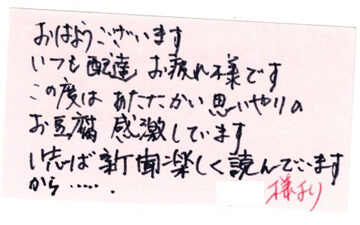 おはようございます
いつも配達お疲れ様です
この度はあたたかい思いやりの
お豆腐感激しています
いつ
ば新聞楽しく読んでいます
から……
様より